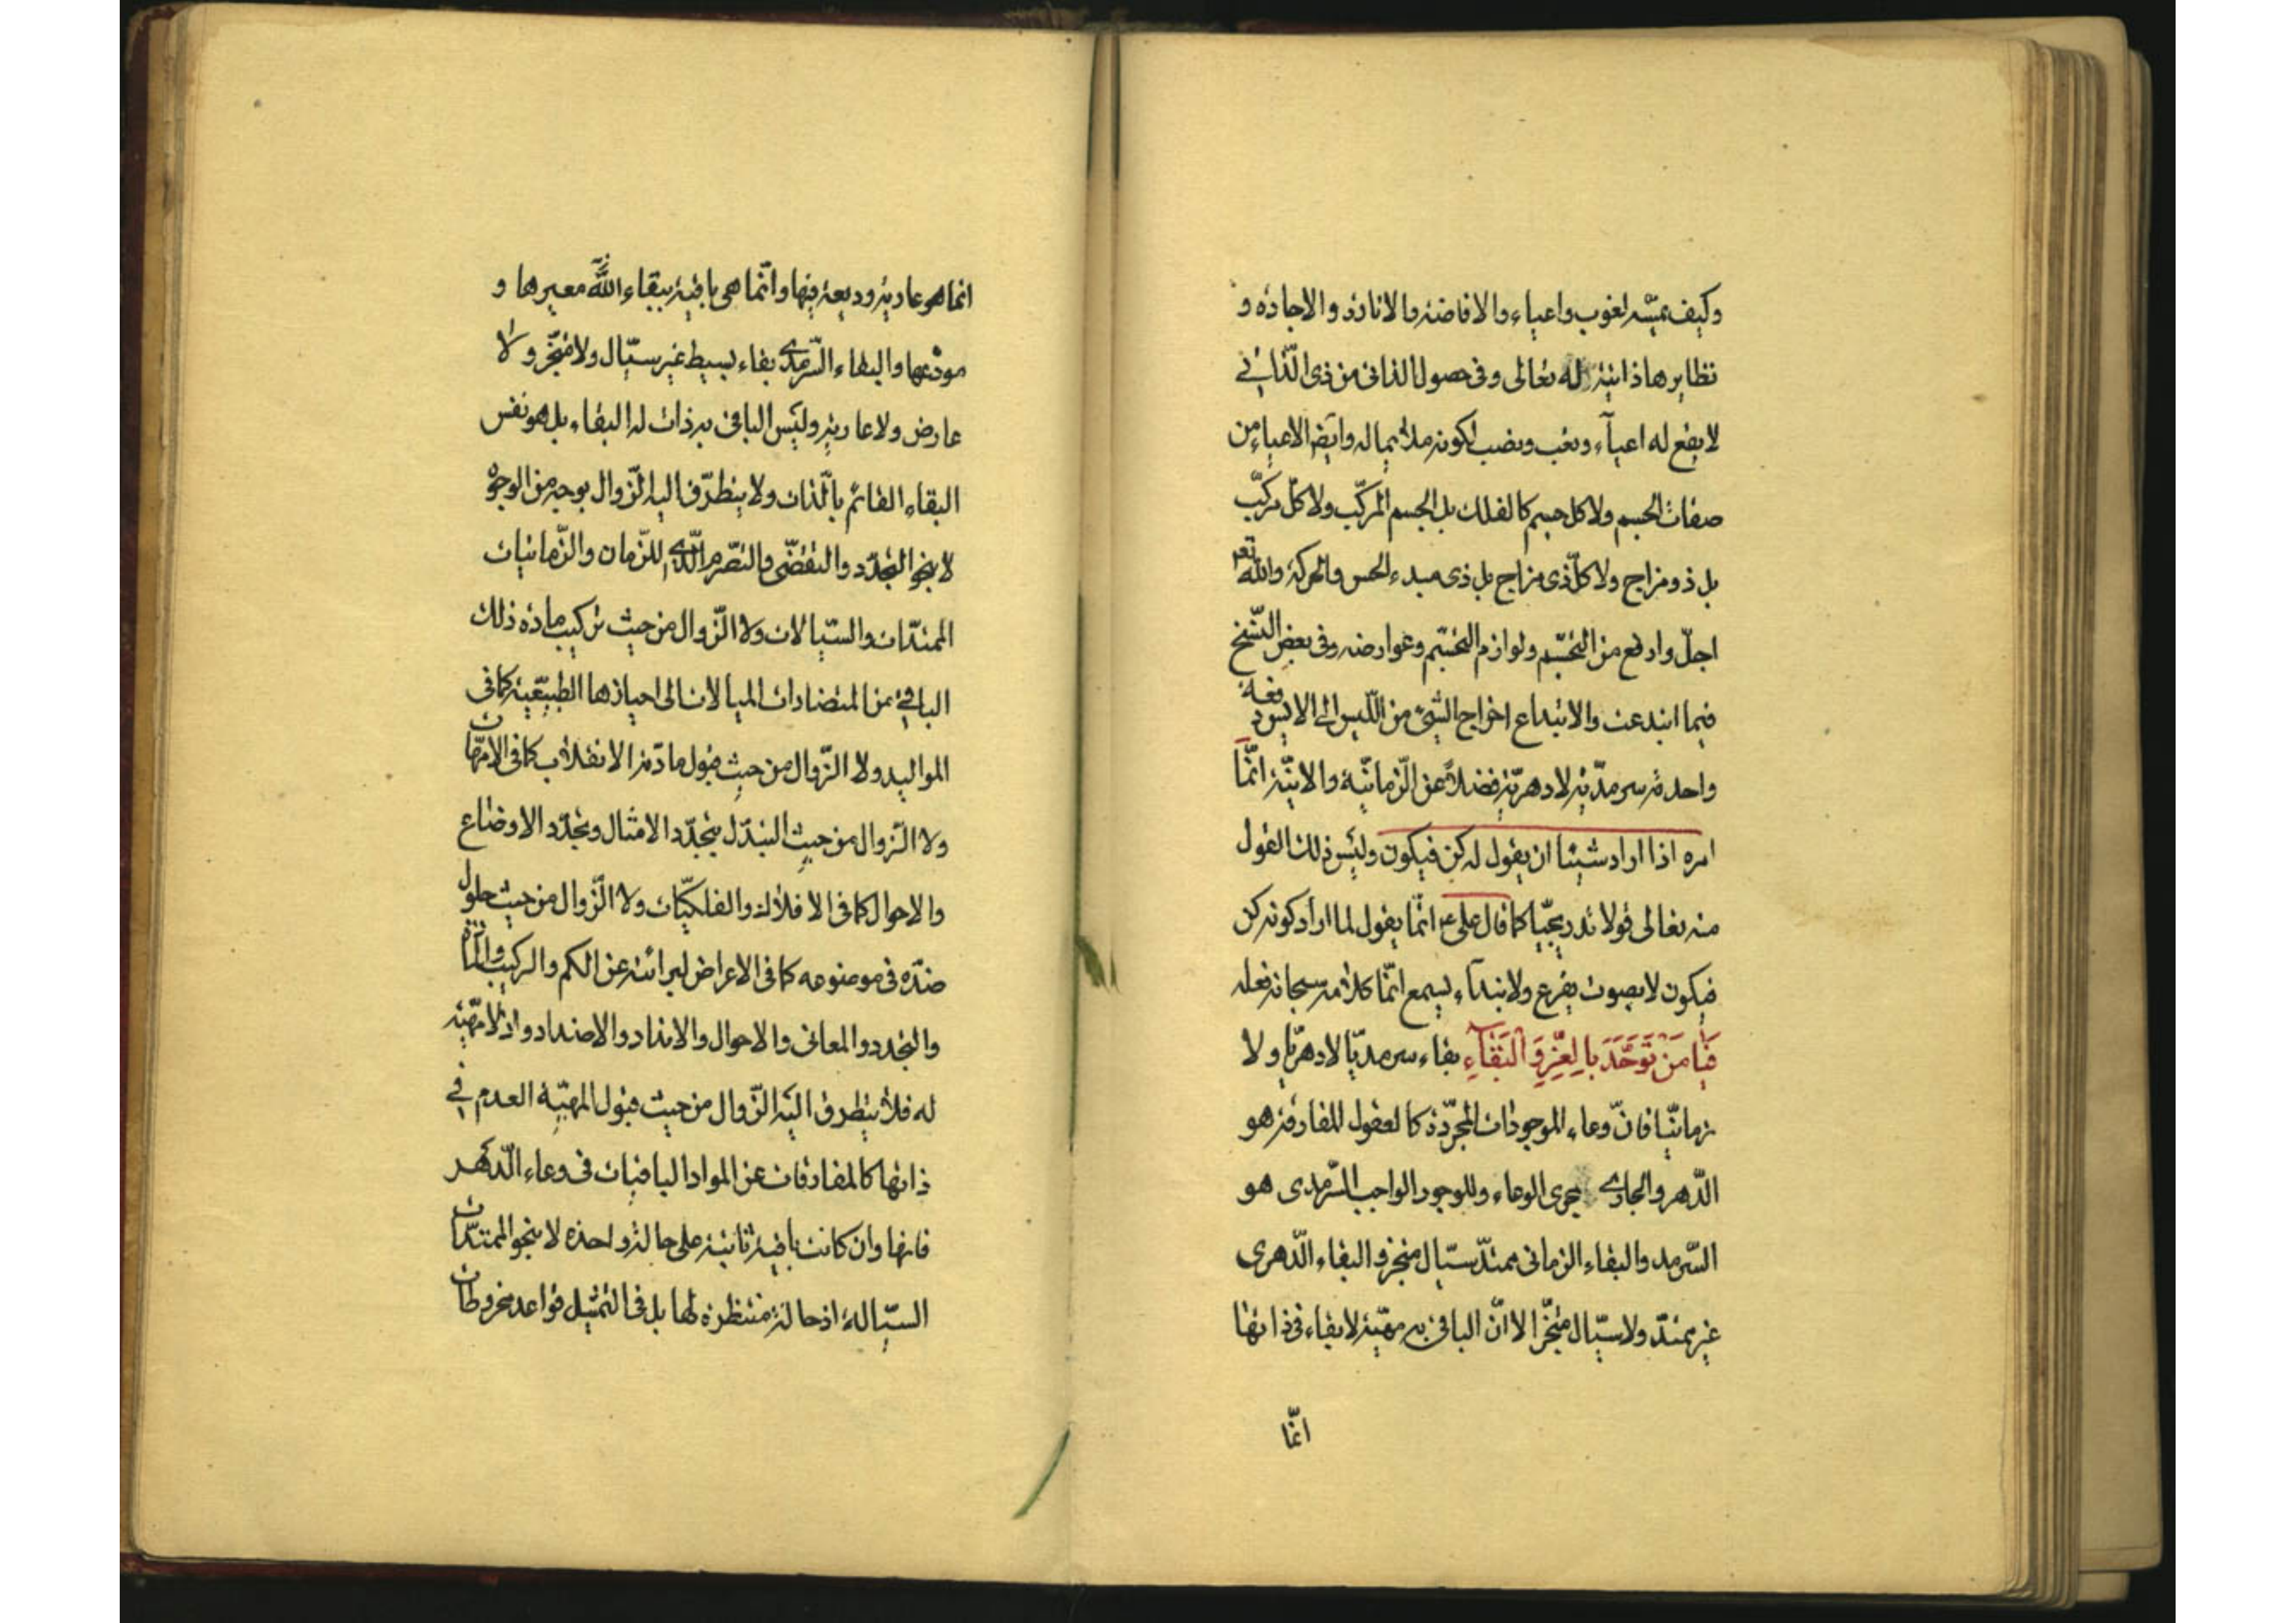 وكيف يمسّه لغوب واعياء والافاضة والانارة والاجادة و
نظايرها ذاتية له تعالى وفى حصول الذاتى من ذى الذّاتى
لا يقع له اعيآء وتعب ونصب لكونه ملائما له وايضا الاعياء من
صفات الجسم ولا كل جسم كالفلك بل الجسم المركّب ولا كل مركّب
بل ذو مزاج ولا كلّ ذى مزاج بل ذى مبدء الحس والحركة والله تعـ
اجلّ وارفع من التجسّم ولوازم التجسّم وعوارضه وفى بعض النّسخ
فيما ابتدعت والابتداع اخراج الشّىء من اللّيس الى الايس دفعة
واحدة سرمديّة لا دهريّة فضلاً عن الزّمانيّة والانيّة انّما
امره اذا اراد شيئا ان يقول له كن فيكون وليس ذلك القول
منه تعالى قولا تدريجيّا كما قال على ع انّما يقول لما اراد كونه كن
فيكون لا بصوت يقرع ولا بندآء يسمع انّما كلامه سبحانه فعله
فَيا مَنْ تَوَحَّدَ بِالعِزِّ وَالبَقآءِ بقاء سرمديّا لا دهريّا ولا
زمانيّا فانّ وعاء الموجودات المجرّدة كالعقول المفارقة هو
الدّهر والجارى مجرى الوعاء وللوجود الواجب السّرمدى هو
السّرمد والبقاء الزمانى ممتدّ سيّال متجز والبقاء الدّهرى
غير ممتدّ ولا سيّال متجزّ الا انّ الباقى به مهيّة لا بقاء فى ذاتها
انّما
انما هو عارية وديعة فيها وانّما هى باقية ببقاء الله معيرها و
مودعها والبقاء السّرمدى بقاء بسيط غير سيّال ولا متجزّ ولا
عارض ولا عارية وليس الباقى به ذات له البقاء بل هو نفس
البقاء القائم بالذّات ولا يتطرّق اليه الزّوال بوجه من الوجوه
لا بنحو التجدّد والتقضّى والتصّرم الّذى للزّمان والزّمانيات
الممتدّات والسّيالات ولا الزّوال من حيث تركيب مادة ذلك
الباقى من المتضادات الميالات الى احيازها الطبيعية كما فى
المواليد ولا الزّوال من حيث قبول مادته الانقلاب كما فى الامّهات
ولا الزّوال من حيث التبدّل بتجدّد الامثال وتجدّد الاوضاع
والاحوال كما فى الافلاك والفلكيّات ولا الزّوال من حيث حلول
ضدّه فى موضوعه كما فى الاعراض لبرائته عن الكم والتركيب والمادّة
والتجدد والمعانى والاحوال والانداد والاضداد واذ لا مهيّة
له فلا يتطرق اليه الزّوال من حيث قبول المهيّة العدم فى
ذاتها كالمفارقات عن المواد الباقيات فى وعاء الدّهر
فانها وان كانت باقية ثابتة على حالة واحدة لا بنحو الممتدّات
السيّالة اذ حالة منتظرة لها بل فى التمثيل قواعد مخروطات